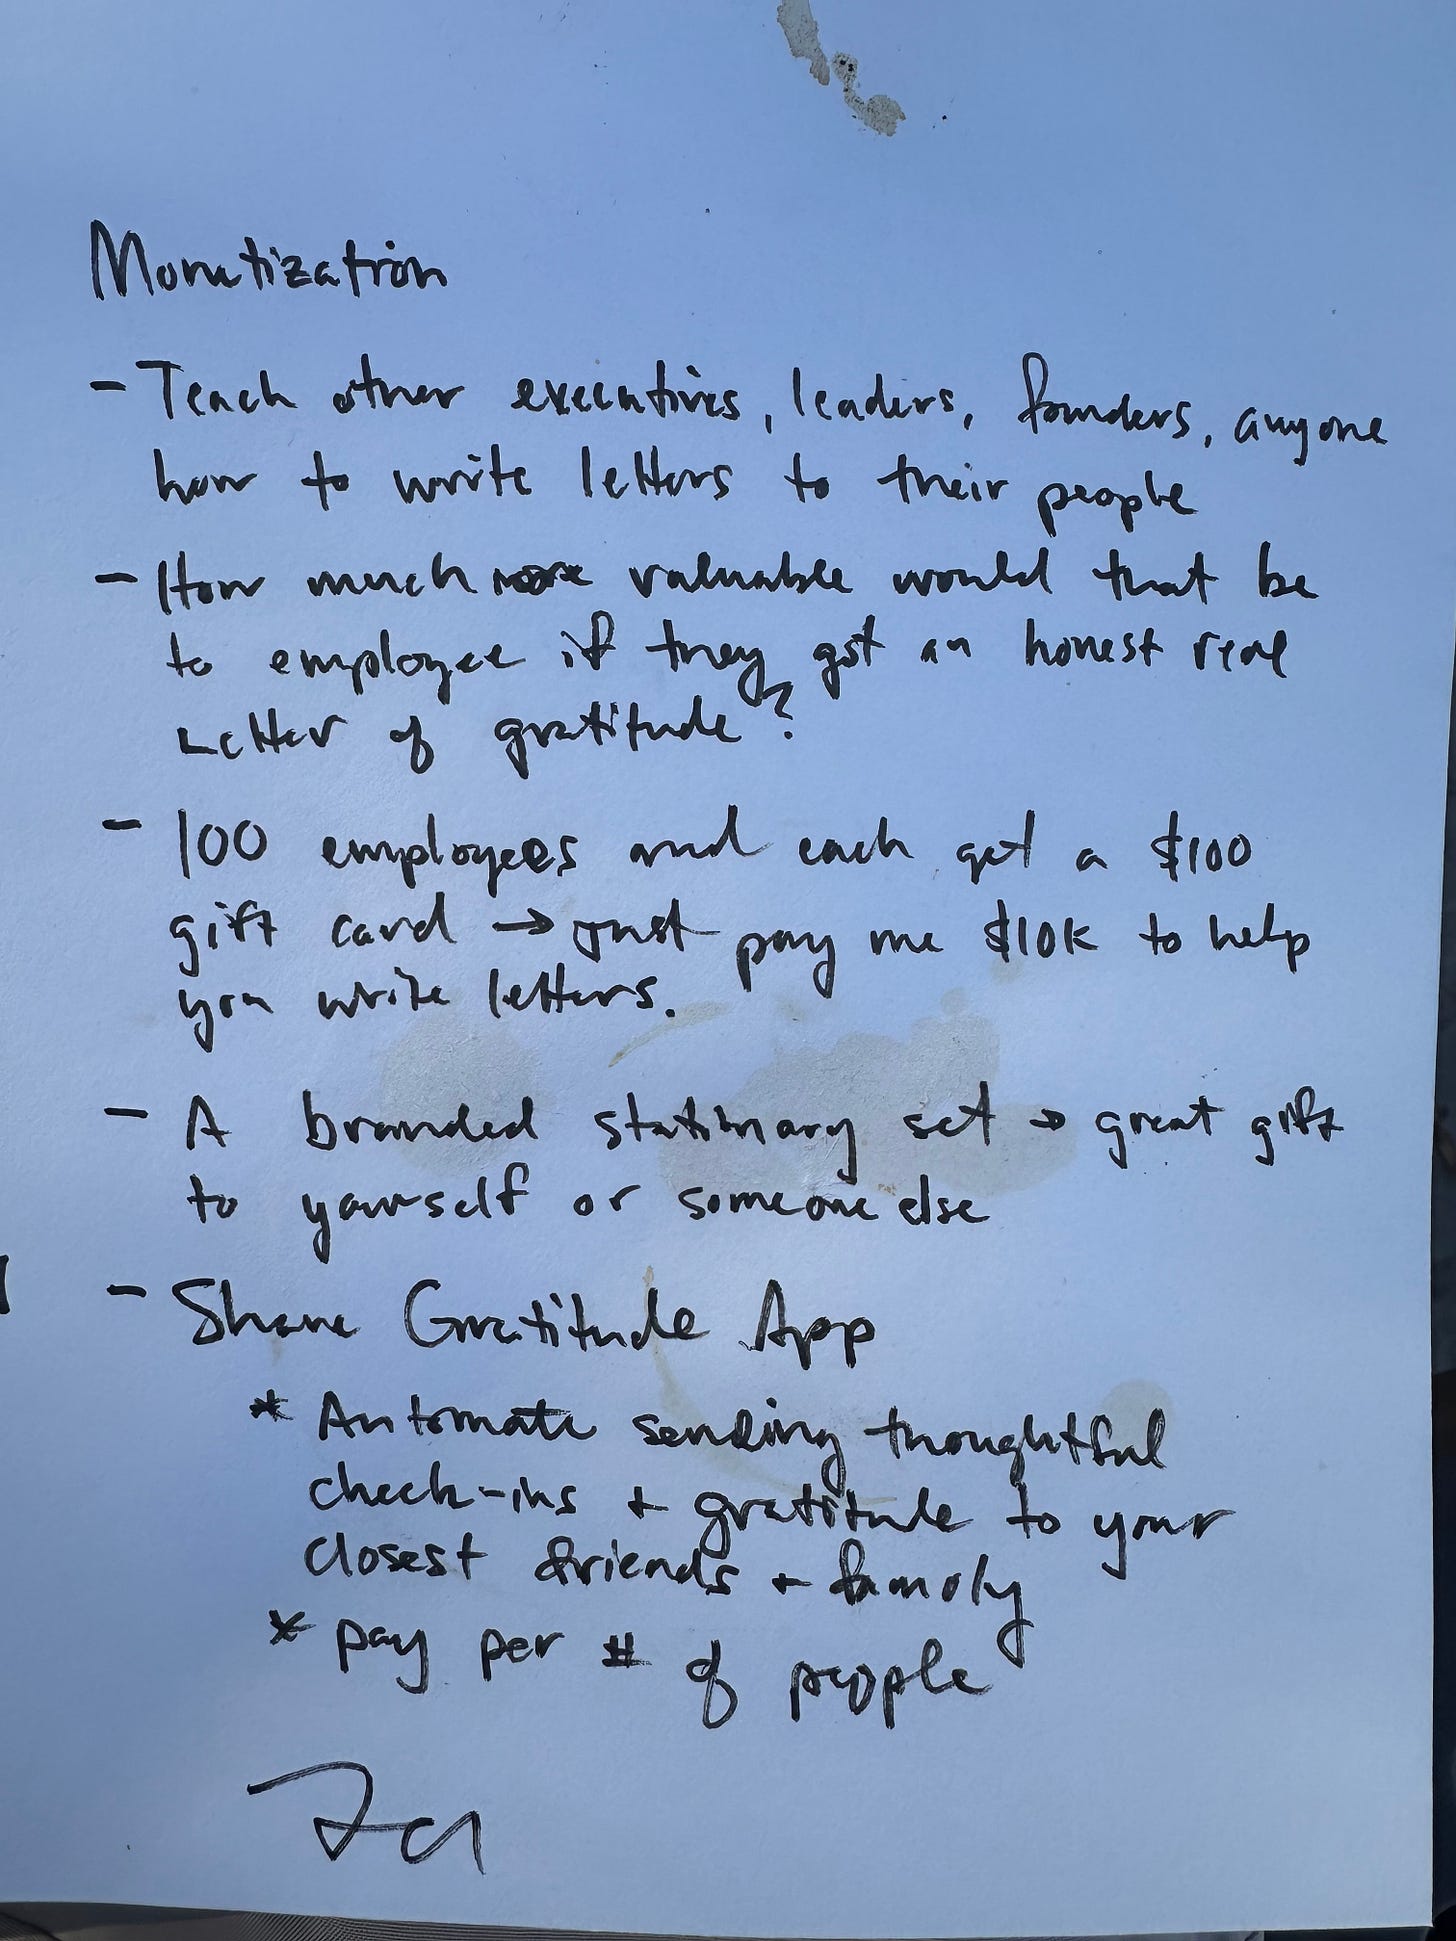 Monetization
- Teach other executives, leaders, founders, anyone
how to write letters to their people
- How much more valuable would that be
to employee if they got an honest real
Letter of gratitude?
- 100 employees and each get a $100
gift card → just pay me $10K to help
you write letters.
- A branded stationary set → great gift
to yourself or someone else
- Share Gratitude App
* Automate sending thoughtful
check-ins + gratitude to your
closest friends + family
* pay per # of people